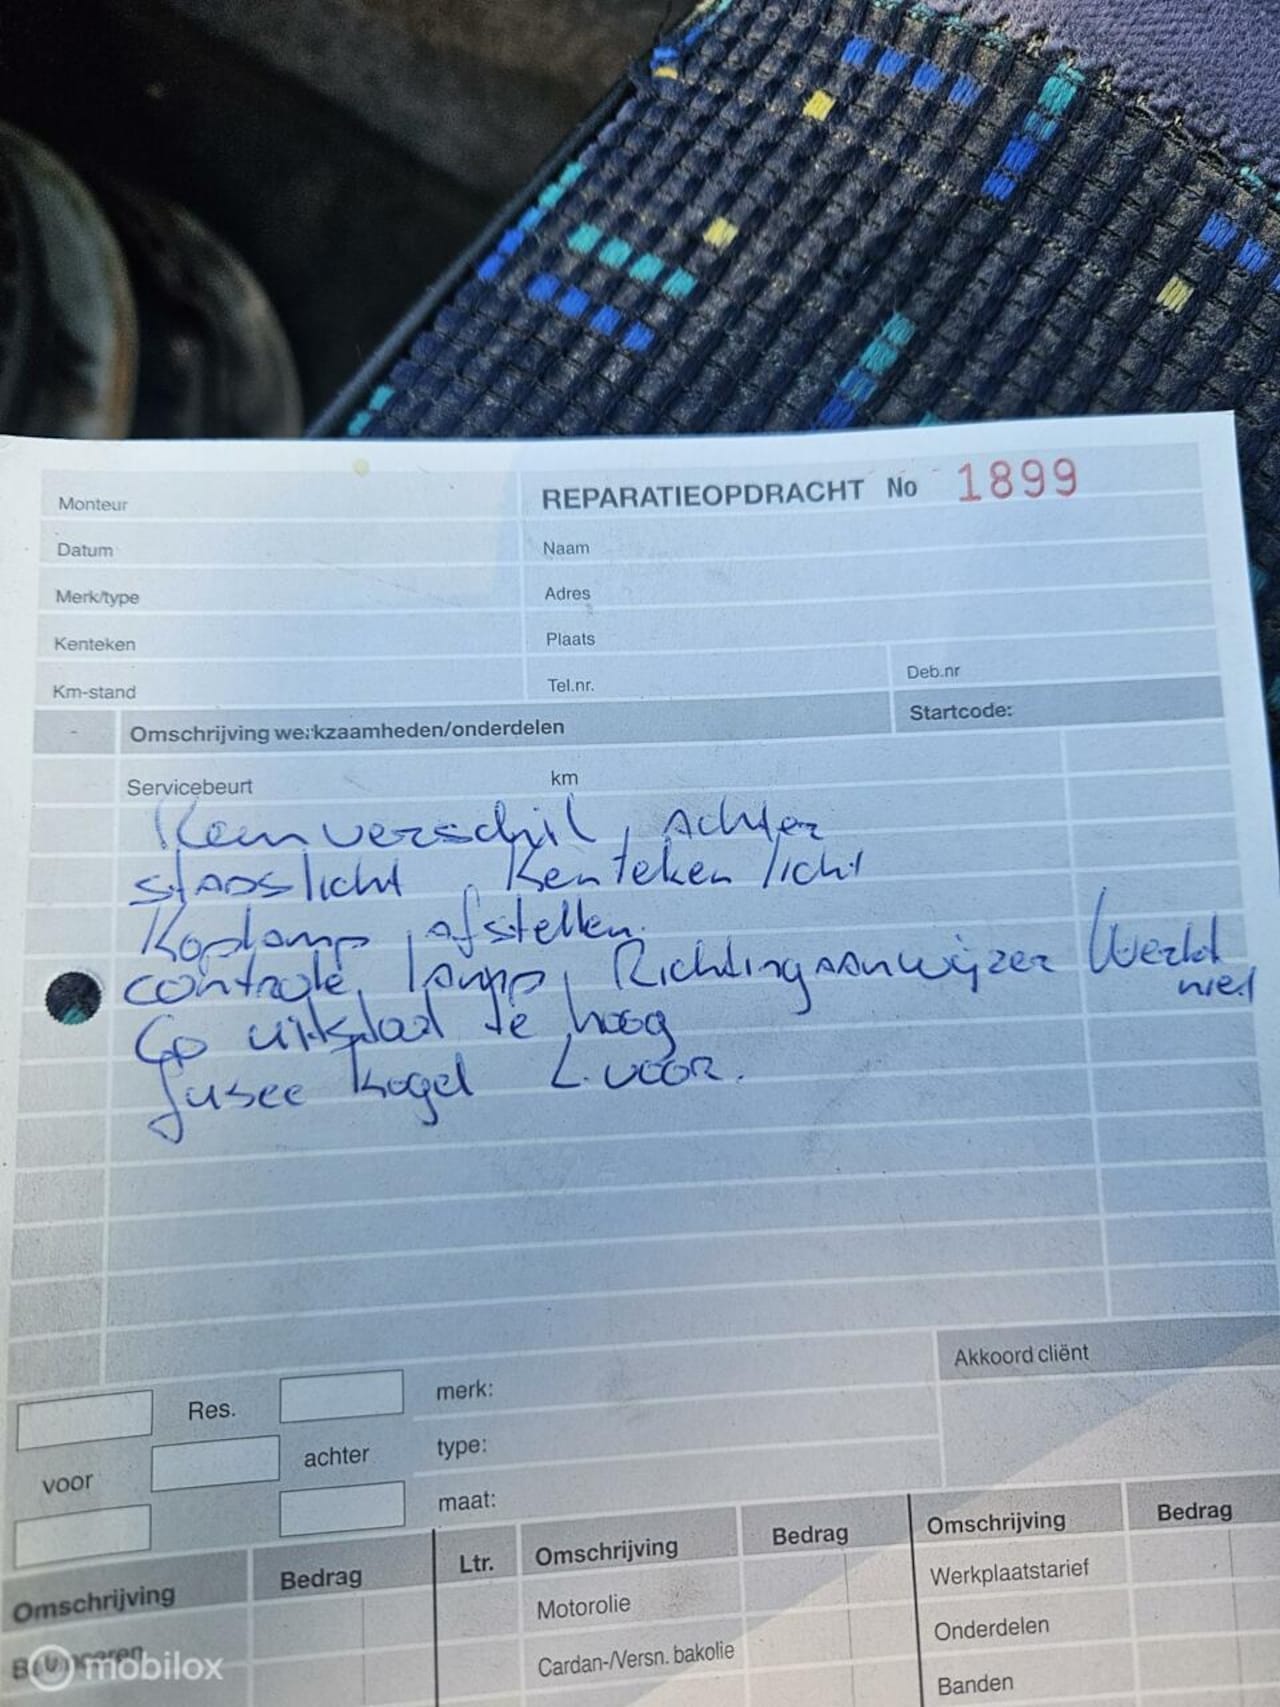 Monteur
REPARATIEOPDRACHT No 1899
Datum
Naam
Merk/type
Adres
Kenteken
Plaats
Km-stand
Tel.nr.
Deb.nr
- Omschrijving werkzaamheden/onderdelen
Startcode:
Servicebeurt km
Remverschil, achter
stadslicht, Kentekenlicht
Koplamp afstellen.
controle lamp, Richtingaanwijzer Werkt
niet
Co uitstoot te hoog
fusee kogel L. voor.
Akkoord cliënt
Res.
merk:
voor
achter
type:
maat:
Omschrijving
Bedrag
Ltr.
Omschrijving
Bedrag
Omschrijving
Bedrag
Motorolie
Werkplaatstarief
Cardan-/Versn. bakolie
Onderdelen
Banden
mobilox